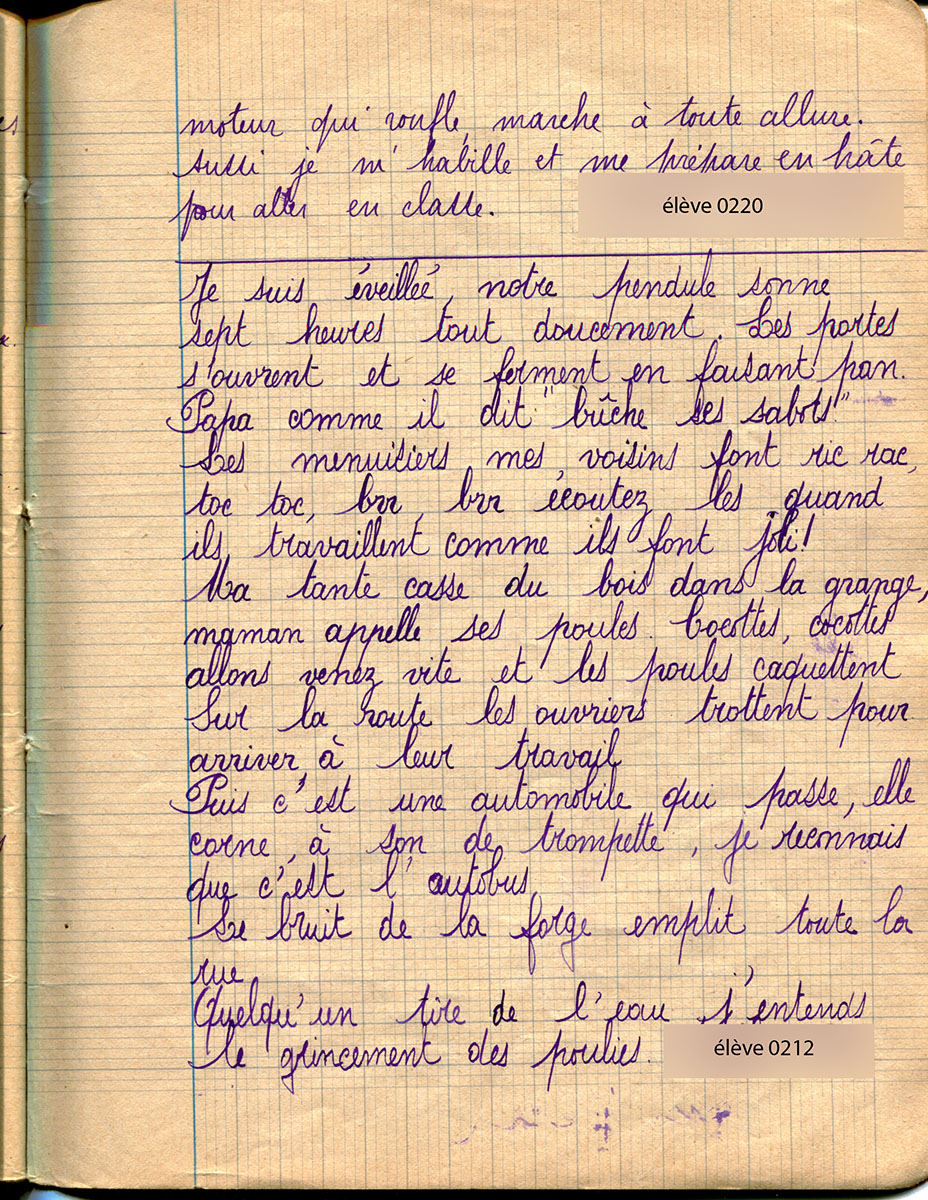 moteur qui ronfle, marche à toute allure.
Aussi je m'habille et me prépare en hâte
pour aller en classe.
élève 0220
Je suis éveillée, notre pendule sonne
sept heures tout doucement. Les portes
s'ouvrent et se ferment en faisant pan.
Papa comme il dit "bûche ses sabots!"
Les menuisiers mes voisins font ric rac,
toc toc, brr, brr écoutez les quand
ils travaillent comme ils font joli!
Ma tante casse du bois dans la grange,
maman appelle ses poules. Cocottes, cocottes
allons venez vite et les poules caquettent
Sur la route les ouvriers trottent pour
arriver à leur travail
Puis c'est une automobile qui passe, elle
corne, à son de trompette, je reconnais
que c'est l'autobus.
Le bruit de la forge emplit toute la
rue
Quelqu'un tire de l'eau j'entends
le grincement des poulies.
élève 0212